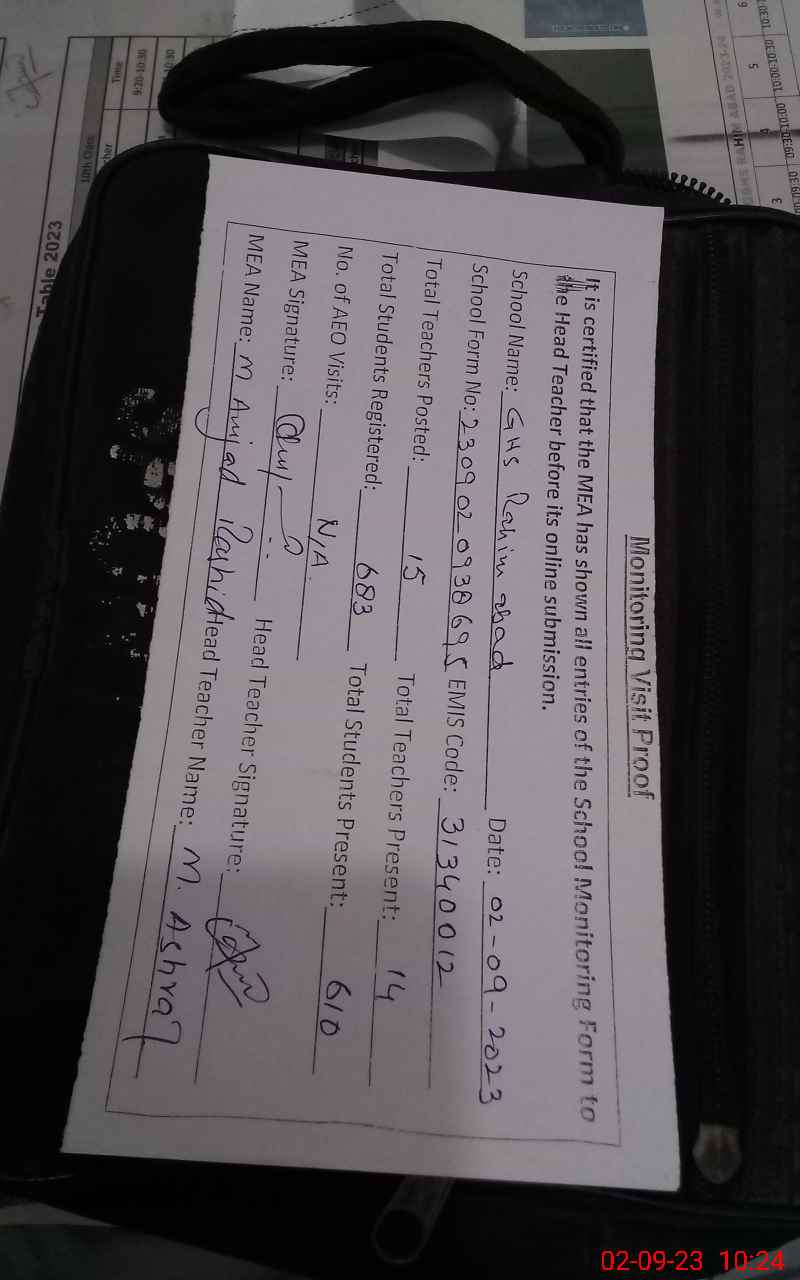 Monitoring Visit Proof
It is certified that the MEA has shown all entries of the School Monitoring Form to
the Head Teacher before its online submission.
School Name: GHS Rahim abad Date: 02-09-2023
School Form No: 2309020938695 EMIS Code: 31340012
Total Teachers Posted: 15 Total Teachers Present: 14
Total Students Registered: 683 Total Students Present: 610
No. of AEO Visits: N/A
MEA Signature: Head Teacher Signature:
MEA Name: M Amjad Rashid Head Teacher Name: M. Ashraf
Table 2023
Time
02-09-23 10:24